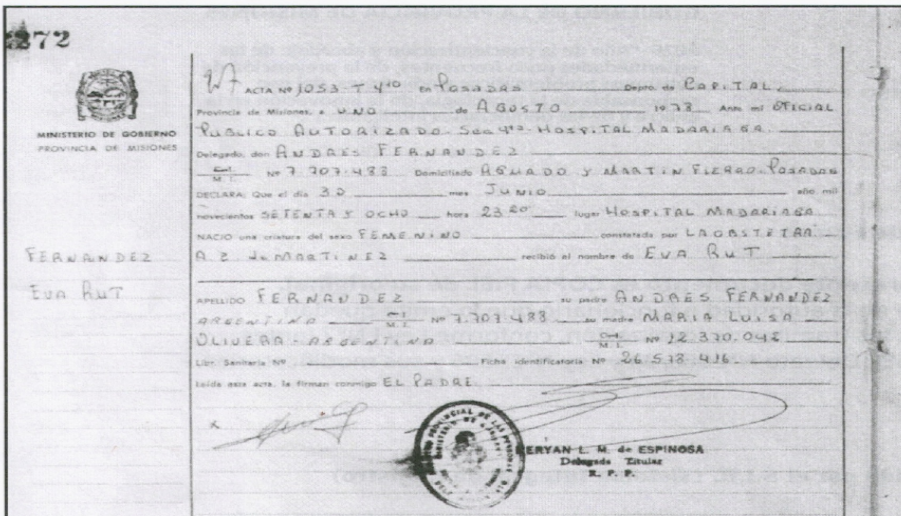 272
MINISTERIO DE GOBIERNO
PROVINCIA DE MISIONES
FERNANDEZ
EVA RUT
ACTA Nº 1053-T 4to en POSADAS Depto. de CAPITAL
Provincia de Misiones, a UNO de AGOSTO 1978 Ante mi OFICIAL
PUBLICO AUTORIZADO. Sec 4ta. HOSPITAL MADARIAGA.
Delegado, don ANDRES FERNANDEZ
M. I. Nº 7.707.488 Domiciliado AGUADO Y MARTIN FIERRO. POSADAS
DECLARA: Que el día 30 mes JUNIO año mil
novecientos SETENTA Y OCHO hora 23.20 lugar HOSPITAL MADARIAGA
NACIO una criatura del sexo FEMENINO constatada por LA OBSTETRA
A. Z. de MARTINEZ recibió el nombre de EVA RUT
APELLIDO FERNANDEZ su padre ANDRES FERNANDEZ
ARGENTINO M. I. Nº 7.707.488 su madre MARIA LUISA
OLIVERA - ARGENTINA M. I. Nº 12.370.048
Libr. Sanitaria Nº Ficha identificatoria Nº 26.578.416.
Leída esta acta, la firman conmigo EL PADRE
ERYAN L. M. de ESPINOSA
Delegada Titular
R. P. P.